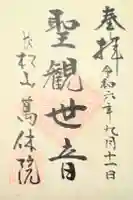 奉拝
令和六年九月十一日
聖観世音
松山萬休院